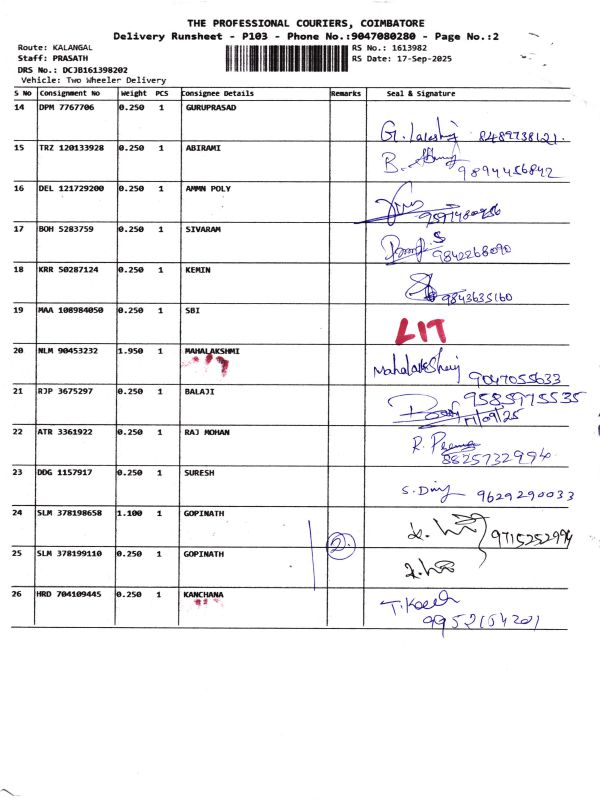 THE PROFESSIONAL COURIERS, COIMBATORE
Delivery Runsheet - P103 - Phone No.:9047080280 - Page No.:2
Route: KALANGAL RS No.: 1613982
Staff: PRASATH RS Date: 17-Sep-2025
DRS No.: DCJB161398202
Vehicle: Two Wheeler Delivery
S No Consignment No Weight PCS Consignee Details Remarks Seal & Signature
14 DPM 7767706 0.250 1 GURUPRASAD
8489738121.
15 TRZ 120133928 0.250 1 ABIRAMI B.
9894456842
16 DEL 121729200 0.250 1 AMMN POLY
17 BOH 5283759 0.250 1 SIVARAM
9842268090
18 KRR 50287124 0.250 1 KEMIN
9843635160
19 MAA 108984050 0.250 1 SBI
LIT
20 NLM 90453232 1.950 1 MAHALAKSHMI
9047055633
21 RJP 3675297 0.250 1 BALAJI 9585975535
17/09/25
22 ATR 3361922 0.250 1 RAJ MOHAN R.
8825732994
23 DDG 1157917 0.250 1 SURESH
S. 9629290033
24 SLM 378198658 1.100 1 GOPINATH
2 9715252994
25 SLM 378199110 0.250 1 GOPINATH
26 HRD 704109445 0.250 1 KANCHANA
9952154201